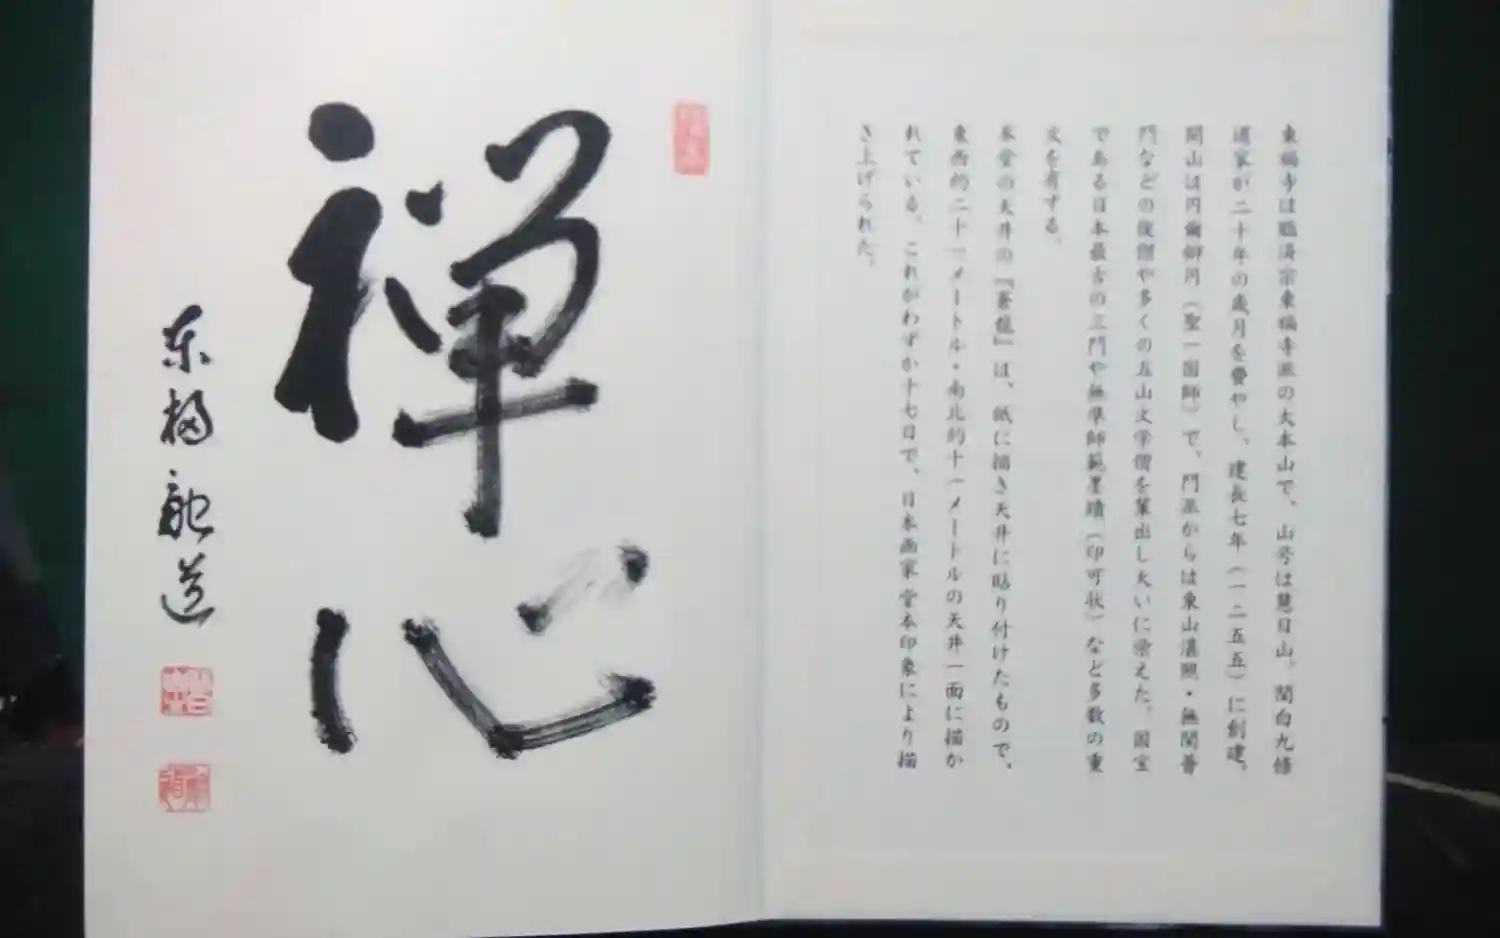 東福寺は臨済宗東福寺派の大本山で、山号は慧日山。関白九條
道家が二十年の歳月を費やし、建長七年（一二五五）に創建。
開山は円爾辯円（聖一国師）で、門派からは東山湛照・無関普
門などの俊僧や多くの五山文学僧を輩出し大いに栄えた。国宝
である日本最古の三門や無準師範墨蹟（印可状）など多数の重
文を有する。
本堂の天井の『蒼龍』は、紙に描き天井に貼り付けたもので、
東西約二十一メートル・南北約十一メートルの天井一面に描か
れている。これがわずか十七日で、日本画家堂本印象により描
き上げられた。
禅心
东福 道